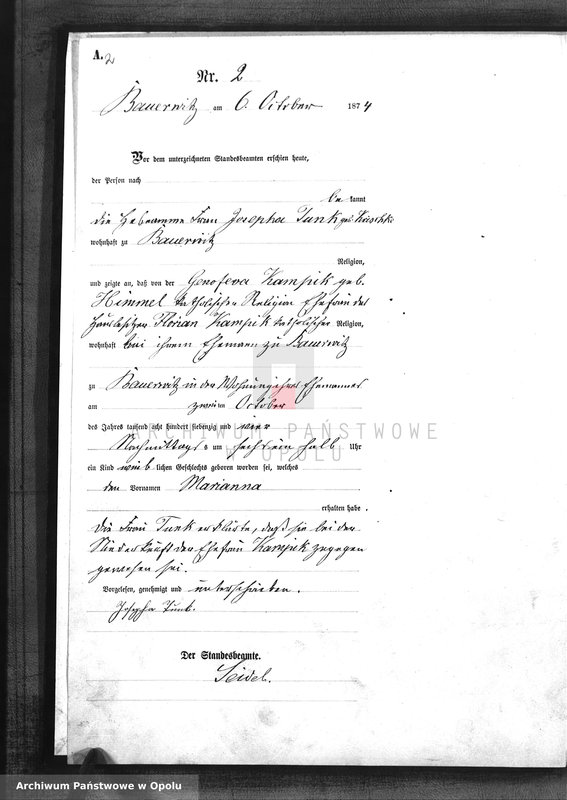 A. 2
Nr. 2
Bauerwitz am 6. October 1874
Vor dem unterzeichneten Standesbeamten erschien heute,
der Person nach
be kannt
die Hebeamme Frau Josepha Tunk geb.
wohnhaft zu Bauerwitz
Religion,
und zeigte an, daß von der Genofeva Kampik geb.
Himmel katholischen Religion Ehefrau des
Häuslers Florian Kampik katholischer Religion,
wohnhaft bei ihrem Ehemann zu Bauerwitz
zu Bauerwitz in der Wohnung ihres Ehemannes
am zweiten October
des Jahres tausend acht hundert siebenzig und vier
Nachmittags um sechs ein halb Uhr
ein Kind weib lichen Geschlechts geboren worden sei, welches
den Vornamen Marianna
erhalten habe.
Die Frau Tunk erklärte, daß sie bei der
Niederkunft der Ehefrau Kampik zugegen
gewesen sei.
Vorgelesen, genehmigt und unterschrieben.
Josepha Tunk.
Der Standesbeamte.
Seidel.
ARCHIWUM PAŃSTWOWE
W OPOLU
Archiwum Państwowe w Opolu